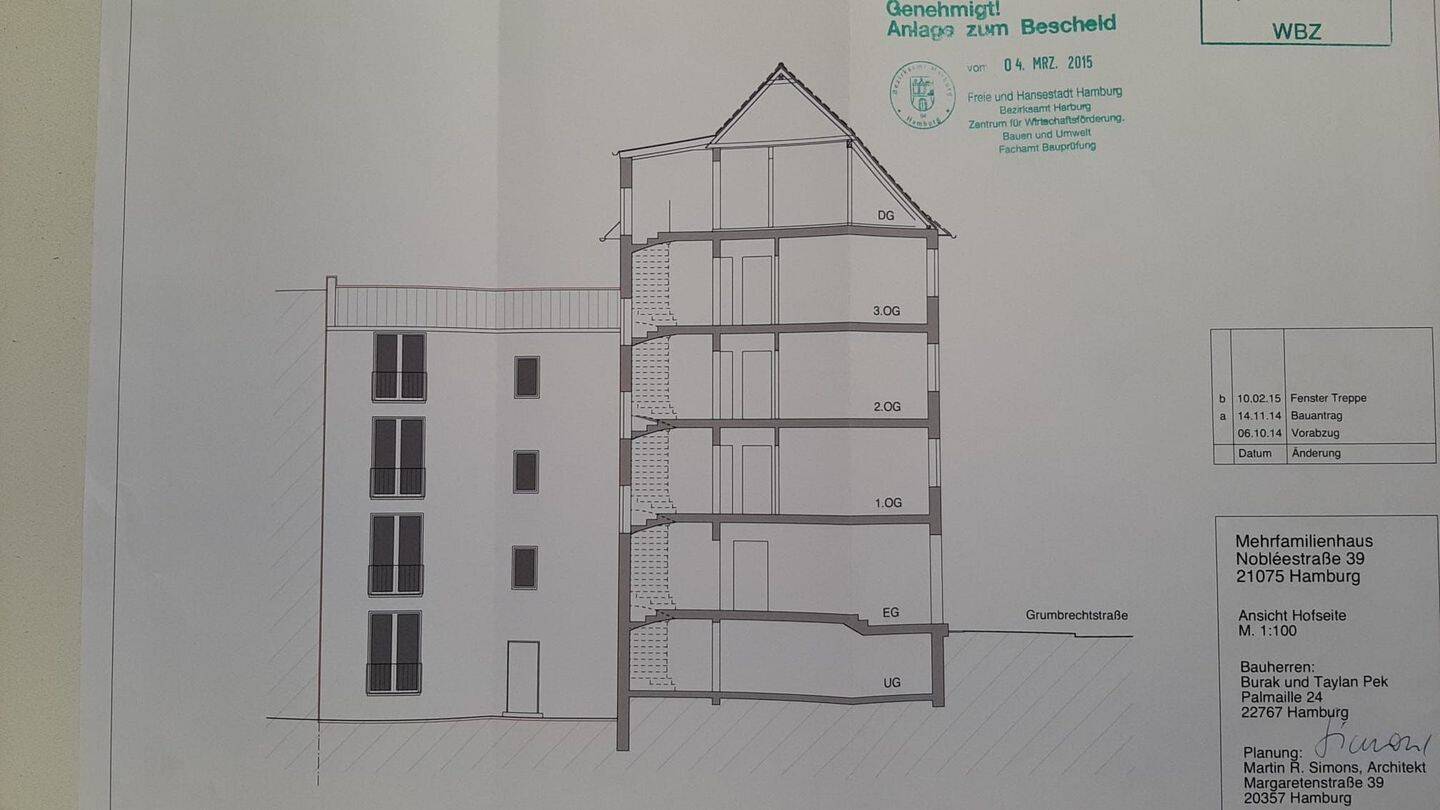 Genehmigt!
Anlage zum Bescheid
vom 04. MRZ. 2015
Freie und Hansestadt Hamburg
Bezirksamt Harburg
Zentrum für Wirtschaftsförderung,
Bauen und Umwelt
Fachamt Bauprüfung
Bezirksamt Harburg
Hamburg
WBZ
DG
3.OG
2.OG
1.OG
EG
UG
Grumbrechtstraße
b 10.02.15 Fenster Treppe
a 14.11.14 Bauantrag
06.10.14 Vorabzug
Datum Änderung
Mehrfamilienhaus
Nobléestraße 39
21075 Hamburg
Ansicht Hofseite
M. 1:100
Bauherren:
Burak und Taylan Pek
Palmaille 24
22767 Hamburg
Planung: Simons
Martin R. Simons, Architekt
Margaretenstraße 39
20357 Hamburg